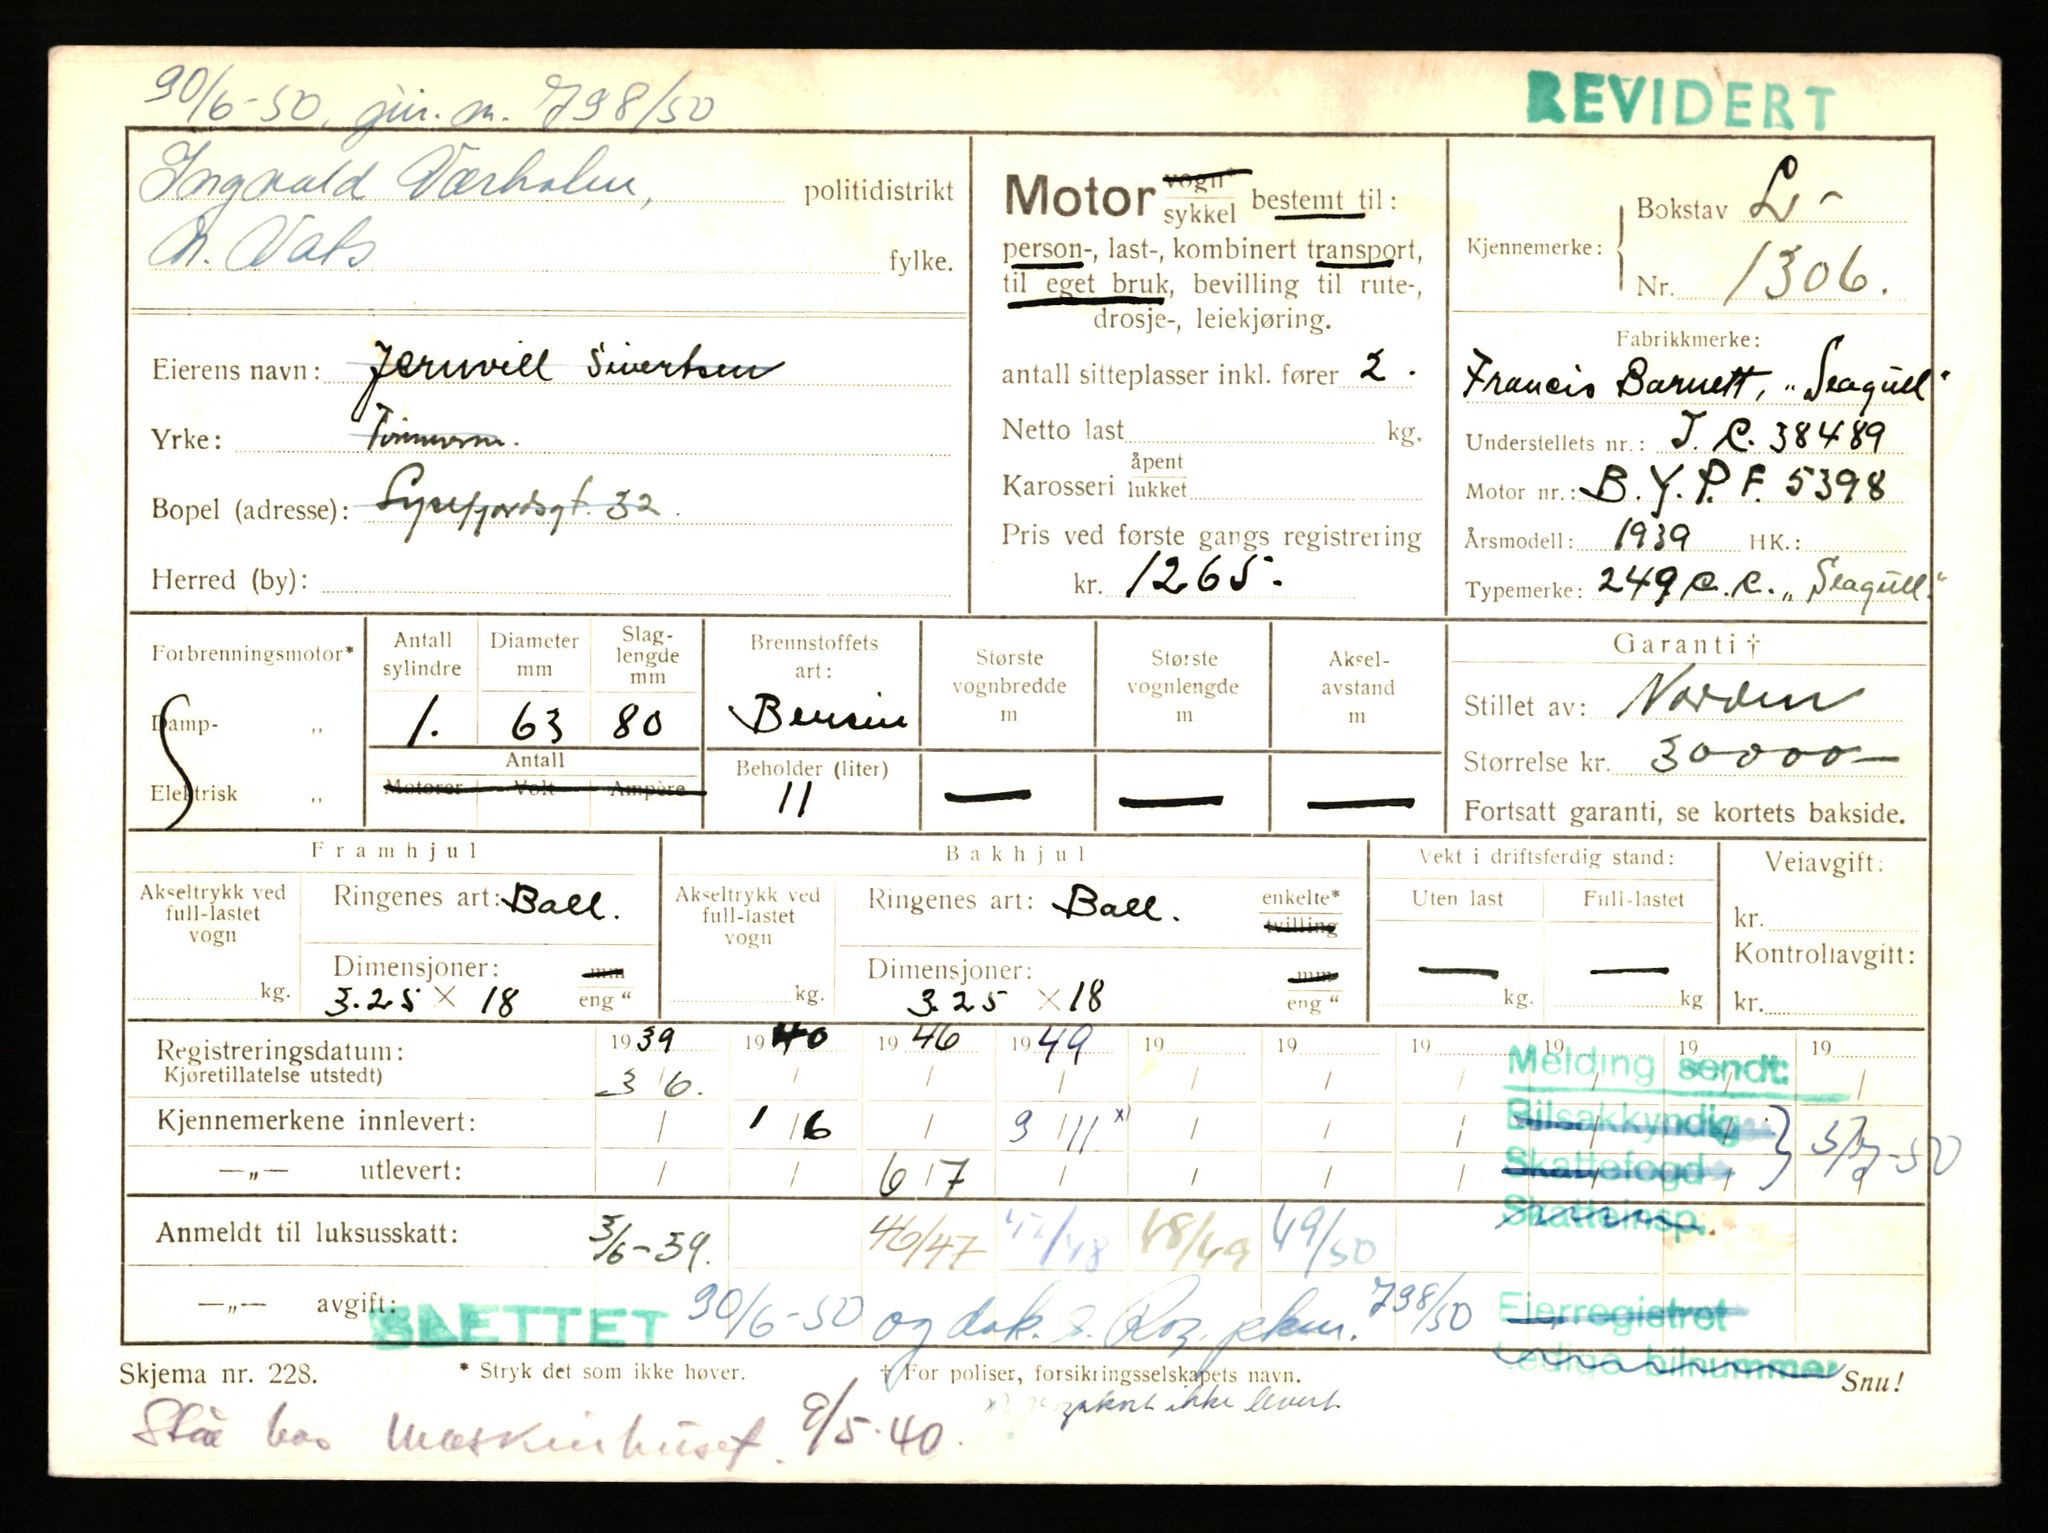 30/6-50, jnr. m. 798/50
REVIDERT
Ingvald Værholm, politidistrikt
N. Vats fylke.
Eierens navn: Jernvill Sivertsen
Yrke:
Bopel (adresse): Lysefjordsgt. 32.
Herred (by):
Motor vogn* sykkel bestemt til:
person-, last-, kombinert transport,
til eget bruk, bevilling til rute-,
drosje-, leiekjøring.
antall sitteplasser inkl. fører 2.
Netto last kg.
Karosseri åpent lukket
Pris ved første gangs registrering
kr. 1265.-
Kjennemerke: Bokstav L-
Nr. 1306.
Fabrikkmerke:
Francis Barnett, „Seagull“
Understellets nr.: J. C. 38489
Motor nr.: B. Y. P. F. 5398
Årsmodell: 1939 HK.:
Typemerke: 249 c. c. „Seagull“
Forbrenningsmotor*
Damp- „
Elektrisk „
Antall sylindre 1.
Diameter mm 63
Slaglengde mm 80
Antall
Motorer Volt Ampère
Brennstoffets art: Bensin
Beholder (liter) 11
Største vognbredde m —
Største vognlengde m —
Akselavstand m —
Garanti †
Stillet av: Norden
Størrelse kr. 30000—
Fortsatt garanti, se kortets bakside.
Framhjul
Akseltrykk ved full-lastet vogn kg.
Ringenes art: Ball.
Dimensjoner: mm
3.25 × 18 eng “
Bakhjul
Akseltrykk ved full-lastet vogn kg.
Ringenes art: Ball. enkelte* tvilling
Dimensjoner: mm
3.25 × 18 eng “
Vekt i driftsferdig stand:
Uten last Full-lastet
— —
kg. kg
Veiavgift:
kr.
Kontrollavgift:
kr.
Registreringsdatum: 1939 1940 1946 1949 19 19 19 19 19 19
Kjøretillatelse utstedt) 3/6.
Kjennemerkene innlevert: 1/6 9/11 x)
—„— utlevert: 6/7
Anmeldt til luksusskatt: 3/6-39. 46/47 47/48 48/49 49/50
—„— avgift:
Melding sendt:
Bilsakkyndig
Skattefogd
Skatteinsp.
Eierregistret
Ledige bilnummer
SLETTET 30/6-50 og dok. s. pkm. 798/50
Skjema nr. 228.
* Stryk det som ikke høver.
† For poliser, forsikringsselskapets navn.
Snu!
ikke levert
Står hos Maskinhuset. 9/5-40.